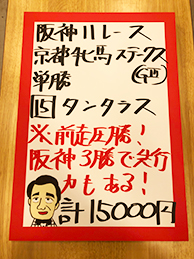 阪神11レース
京都牝馬ステークス
GⅢ
単勝
15 タンタラス
※前走圧勝!
阪神3勝で先行
力もある!
計15000円